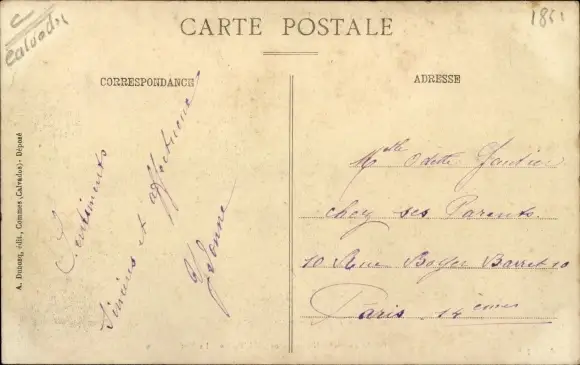 C
Calvados
CARTE POSTALE
CORRESPONDANCE
ADRESSE
A. Dubosq, édit., Commes (Calvados) - Déposé
Sentiments
Sincères et affectueux
Yvonne
Mlle Odette Gautier
chez ses Parents.
10 Rue Boyer Barret 10
Paris 14 ème